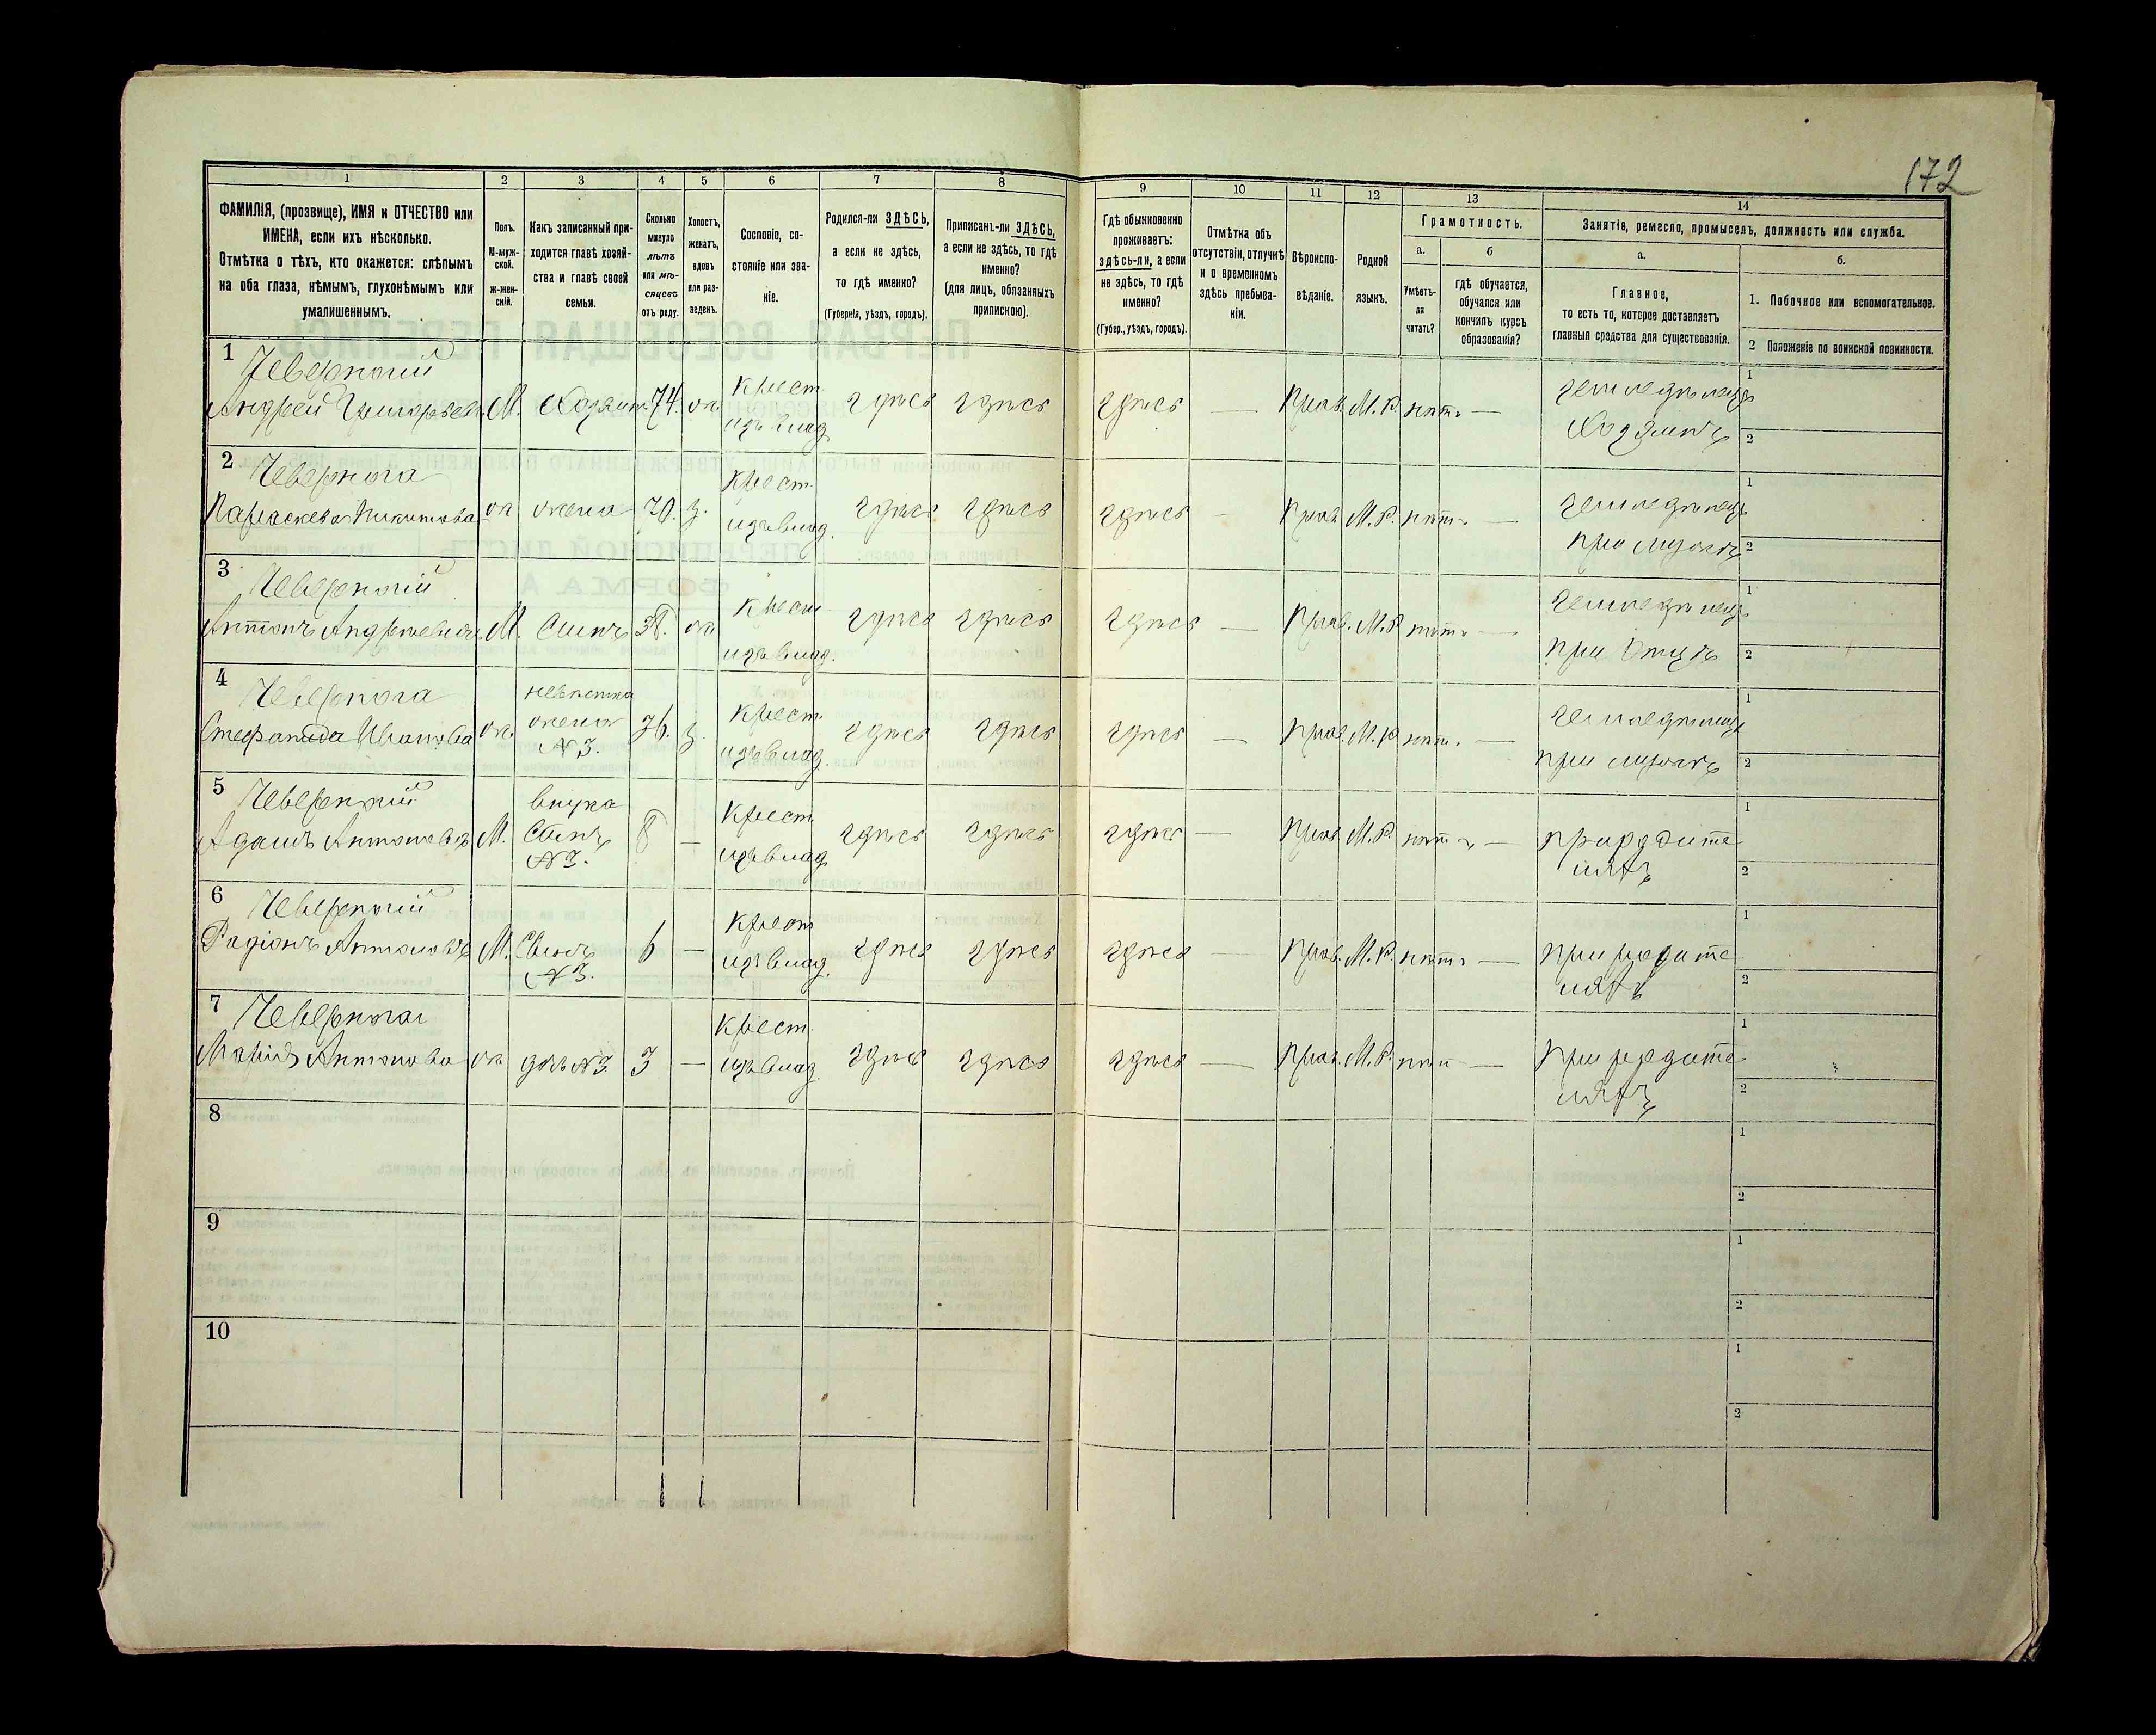 172
1 2 3 4 5 6 7 8 9 10 11 12 13 14
ФАМИЛІЯ, (прозвище), ИМЯ и ОТЧЕСТВО или
ИМЕНА, если ихъ нѣсколько.
Отмѣтка о тѣхъ, кто окажется: слѣпымъ
на оба глаза, нѣмымъ, глухонѣмымъ или
умалишеннымъ.
Полъ.
М-муж-
ской.
ж-жен-
скій.
Какъ записанный при-
ходится главѣ хозяй-
ства и главѣ своей
семьи.
Сколько
минуло
лѣтъ
или мѣ-
сяцевъ
отъ роду.
Холостъ,
женатъ,
вдовъ
или раз-
веденъ.
Сословіе, со-
стояніе или зва-
ніе.
Родился-ли ЗДѢСЬ,
а если не здѣсь,
то гдѣ именно?
(Губернія, уѣздъ, городъ).
Приписанъ-ли ЗДѢСЬ,
а если не здѣсь, то гдѣ
именно?
(для лицъ, обязанныхъ
припискою).
Гдѣ обыкновенно
проживаетъ:
здѣсь-ли, а если
не здѣсь, то гдѣ
именно?
(Губер., уѣздъ, городъ).
Отмѣтка объ
отсутствіи, отлучкѣ
и о временномъ
здѣсь пребыва-
ніи.
Вѣроиспо-
вѣданіе.
Родной
языкъ.
Грамотность.
а.
Умѣетъ-
ли
читать?
б
гдѣ обучается,
обучался или
кончилъ курсъ
образованія?
Занятіе, ремесло, промыселъ, должность или служба.
а.
Главное,
то есть то, которое доставляетъ
главныя средства для существованія.
б.
1. Побочное или вспомогательное.
2 Положеніе по воинской повинности.
1
Андрей Григорьевъ М. Хозяинъ 74. ж. Крест. изъ влад. здѣсь здѣсь здѣсь — Прав. М.Р. нѣтъ — земледѣлецъ 1
Хозяинъ 2
2
Параскева Никитова ж жена 70. з. Крест. изъ влад. здѣсь здѣсь здѣсь — Прав. М.Р. нѣтъ — земледѣлецъ 1
при мужѣ 2
3
Антонъ Андреевъ М. Сынъ 38. ж. Крест. изъ влад. здѣсь здѣсь здѣсь — Прав. М.Р. нѣтъ — земледѣлецъ 1
при Отцѣ 2
4
Стефанида Иванова ж. невѣстка жена №3. 36. з. Крест. изъ влад. здѣсь здѣсь здѣсь — Прав. М.Р. нѣтъ — земледѣлецъ 1
при мужѣ 2
5
Адамъ Антоновъ М. внукъ Сынъ №3. 8 — Крест. изъ влад. здѣсь здѣсь здѣсь — Прав. М.Р. нѣтъ — при родите 1
ляхъ 2
6
Радіонъ Антоновъ М. Сынъ №3. 6 — Крест. изъ влад. здѣсь здѣсь здѣсь — Прав. М.Р. нѣтъ — при родите 1
ляхъ 2
7
Марія Антонова ж дочь №3 3 — Крест. изъ влад. здѣсь здѣсь здѣсь — Прав. М.Р. нѣтъ — при родите 1
ляхъ 2
8 1
2
9 1
2
10 1
2